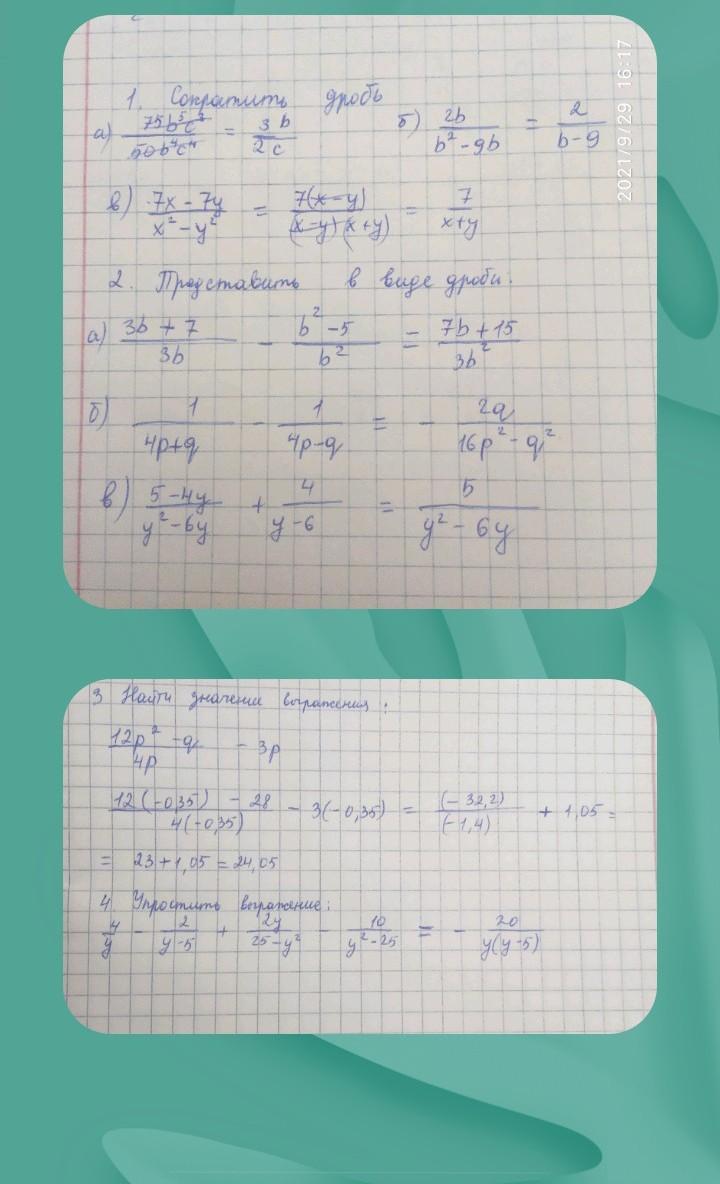 1. Сократить дробь
а) 75b⁵c³/50b⁴c⁴ = 3b/2c б) 2b/b²-9b = 2/b-9
в) 7x - 7y/x² - y² = 7(x-y)/(x-y)(x+y) = 7/x+y
2. Представить в виде дроби:
а) 3b + 7/3b - b² - 5/b² = 7b + 15/3b²
б) 1/4p+q - 1/4p-q = - 2q/16p² - q²
в) 5 - 4y/y² - 6y + 4/y - 6 = 5/y² - 6y
2021/9/29 16:17
3 Найти значение выражения:
12p² - q/4p - 3p
12(-0,35) - 28/4(-0,35) - 3(-0,35) = (-32,2)/(-1,4) + 1,05 =
= 23 + 1,05 = 24,05
4. Упростить выражение:
4/y - 2/y-5 + 2y/25-y² - 10/y²-25 = - 20/y(y-5)